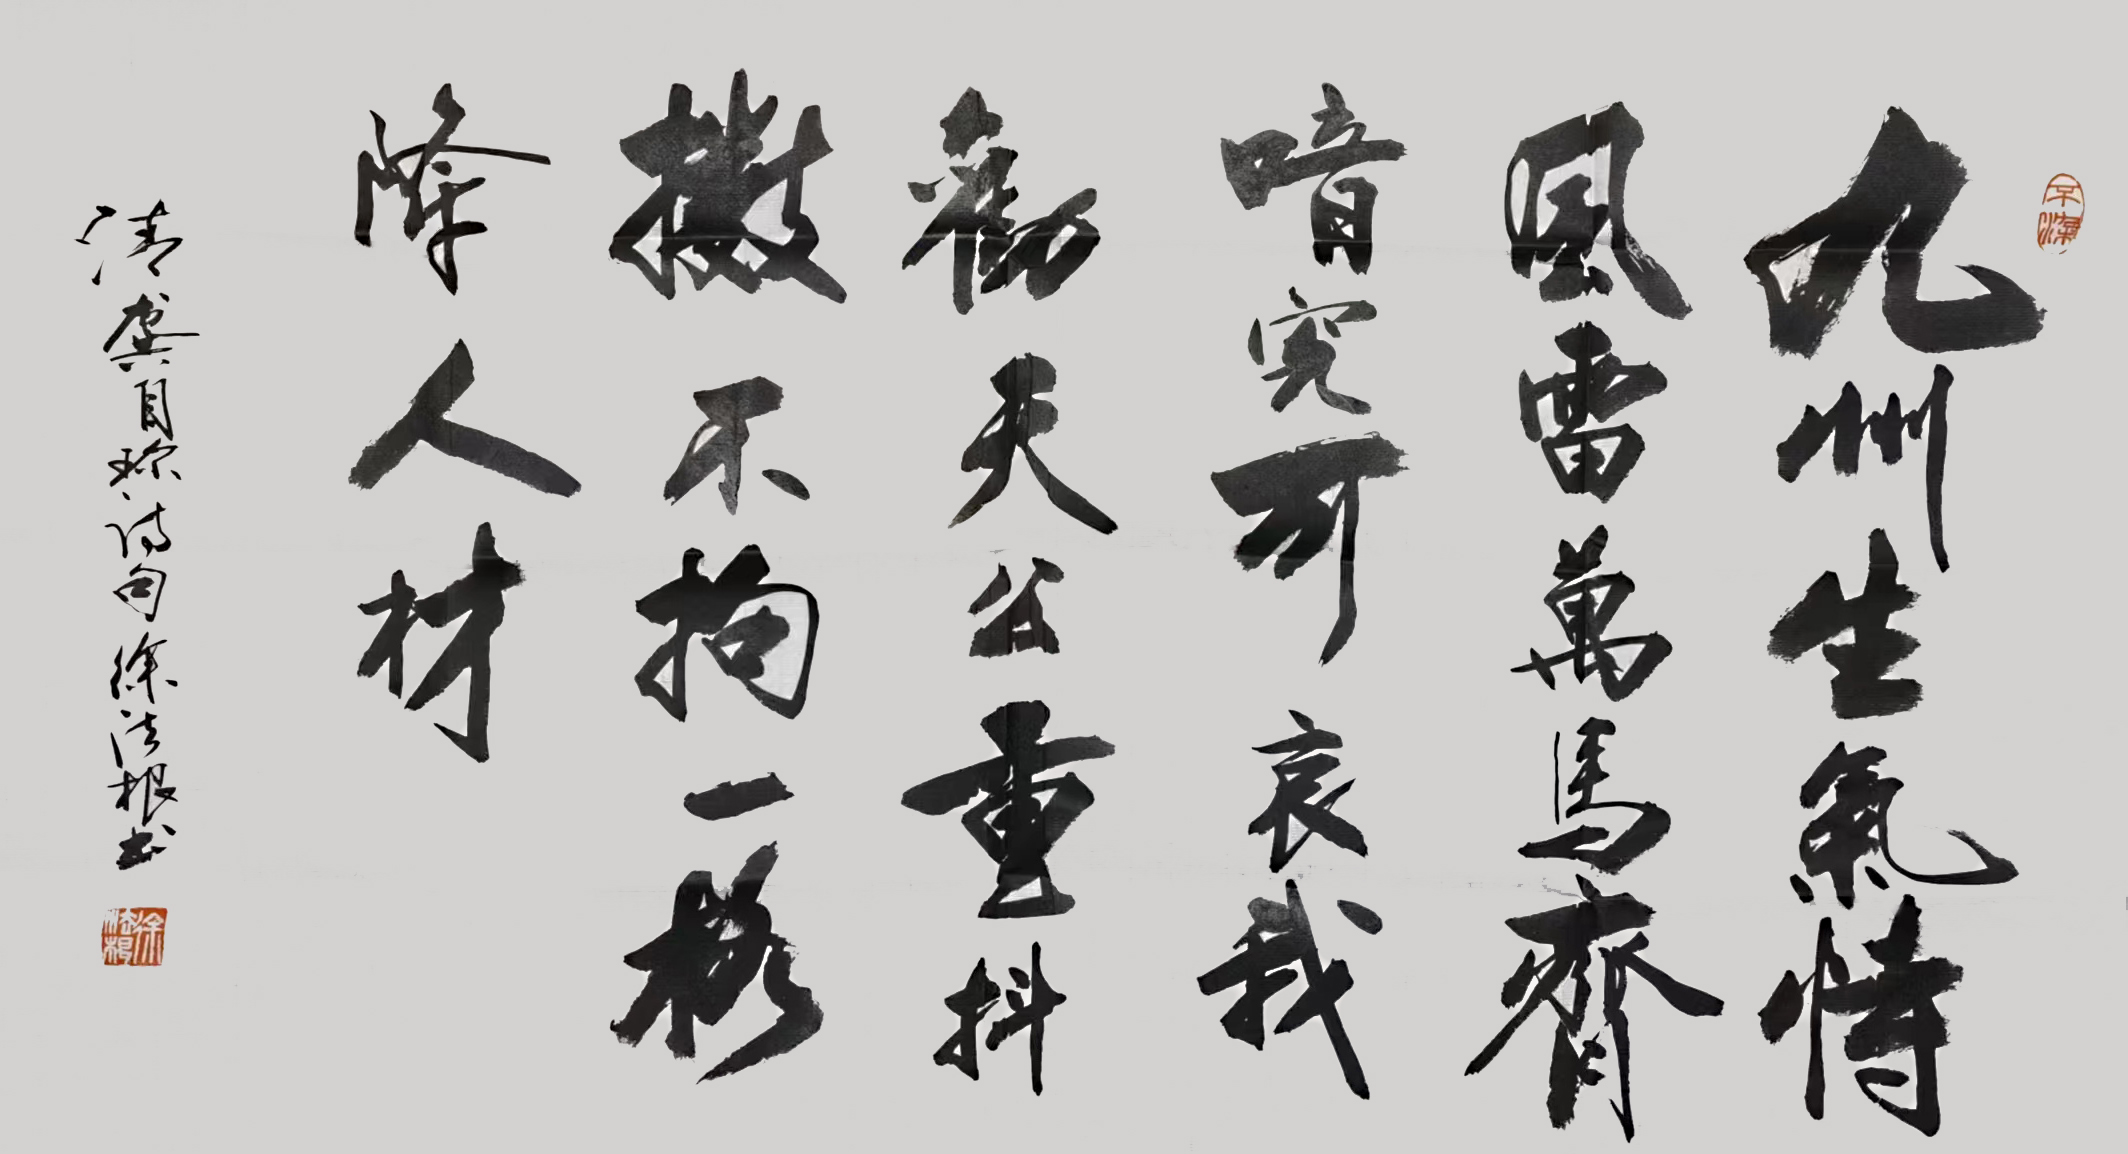 九州生氣恃
風雷萬馬齊
喑究可哀我
勸天公重抖
擻不拘一格
降人材
清龔自珍诗句徐法根书
徐法根